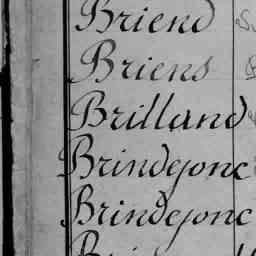 Briend
Briens
Brilland
Brindejonc
Brindejonc